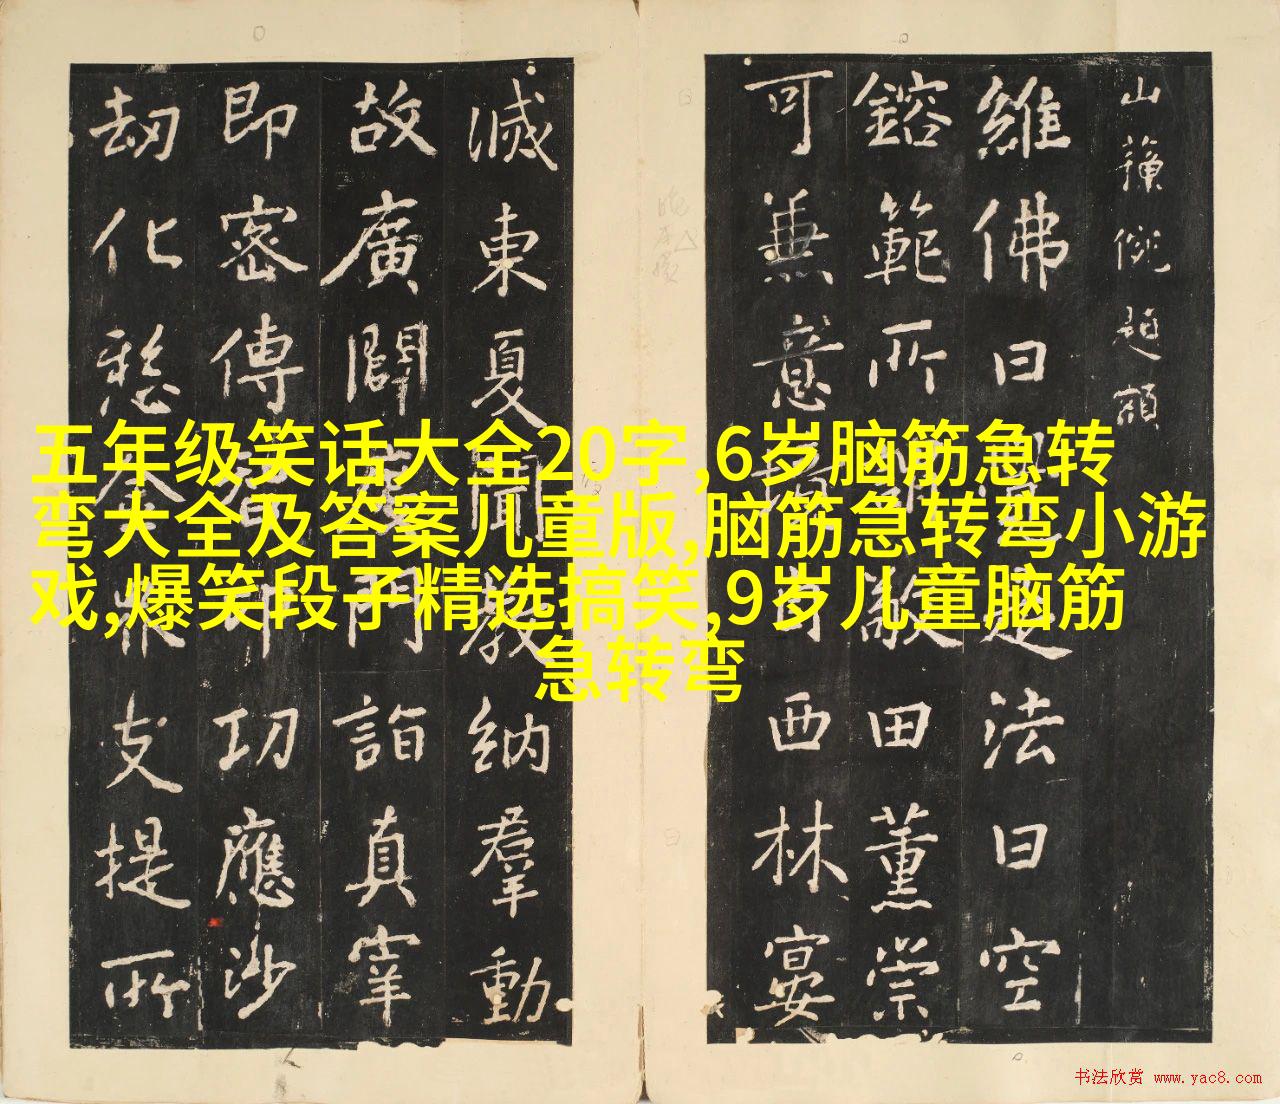 五年级笑话大全20字,6岁脑筋急转
弯大全及答案儿童版,脑筋急转弯小游
戏,爆笑段子精选搞笑,9岁儿童脑筋
急转弯
維佛曰是法曰空
鎔範所田薰崇
可兼意西林宴
滅東夏聞教納羣動
故廣闢門詣真宰
即密傳功應沙
劫化愍支提所
书法欣赏 www.yac8.com